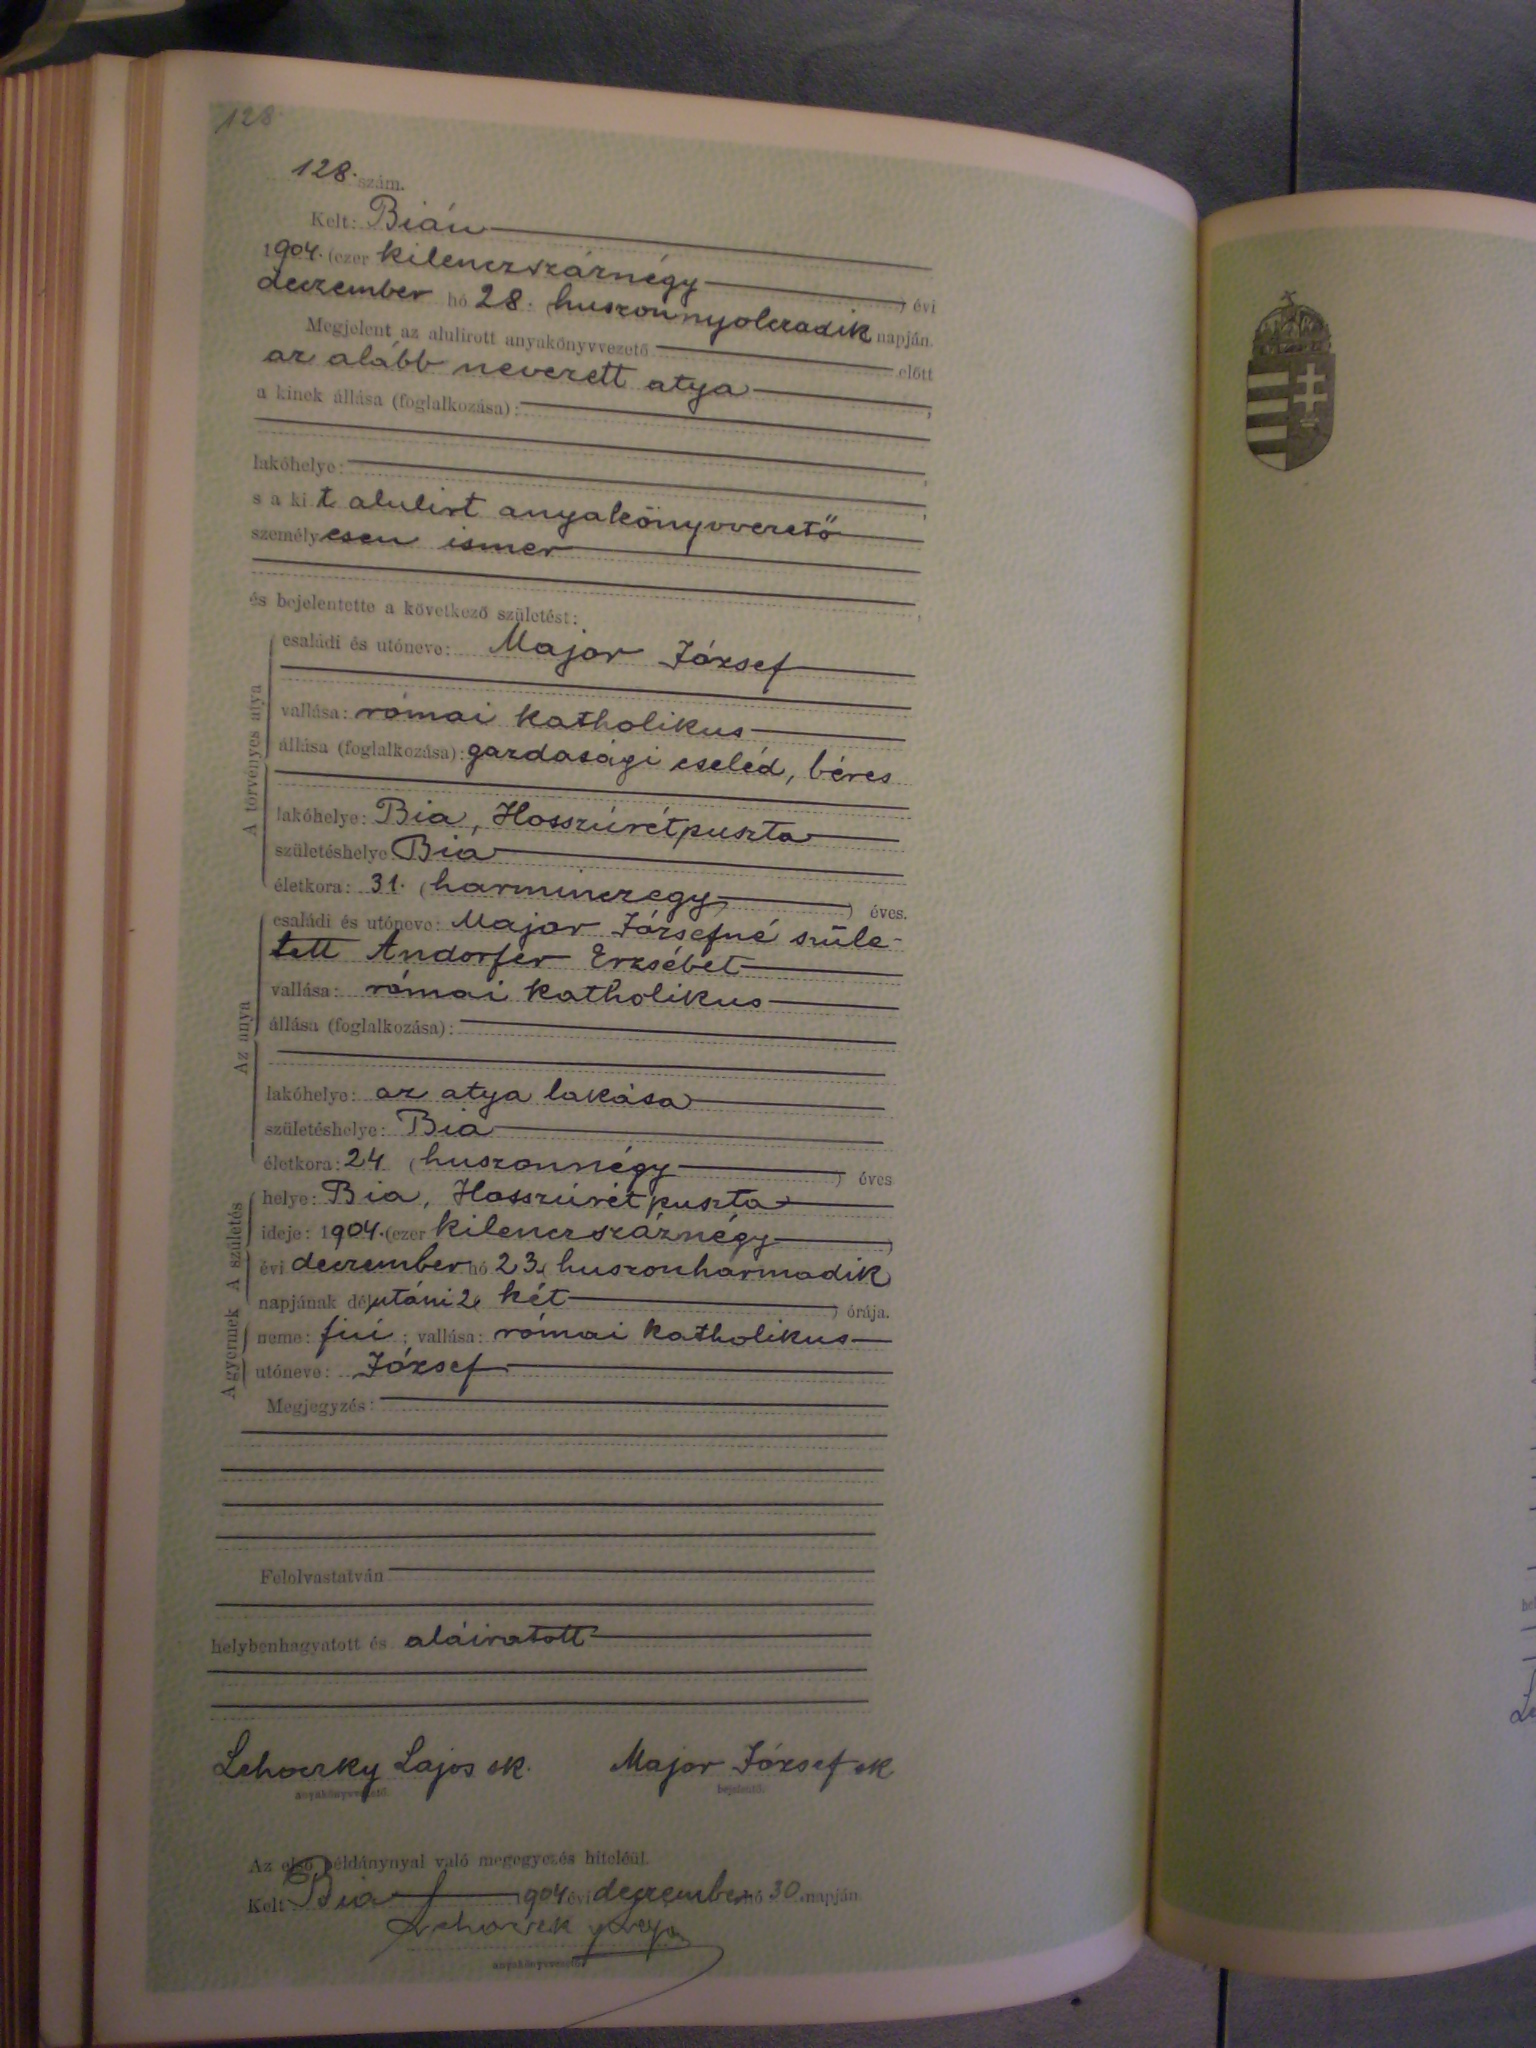 128
128. szám.
Kelt: Bián
1904. (ezer kilenczszáznégy) évi
deczember hó 28. (huszonnyolczadik napján.
Megjelent az alulirott anyakönyvvezető előtt
az alább nevezett atya,
a kinek állása (foglalkozása):
lakóhelye:
s a kit alulirt anyakönyvvezető
személyesen ismer
és bejelentette a következő születést:
A törvényes atya
családi és utóneve: Major József
vallása: római katholikus
állása (foglalkozása): gazdasági cseléd, béres
lakóhelye: Bia, Hosszúrétpuszta
születéshelye Bia
életkora: 31. (harminczegy) éves.
Az anya
családi és utóneve: Major Józsefné szüle-
tett Andorfer Erzsébet
vallása: római katholikus
állása (foglalkozása):
lakóhelye: az atya lakása
születéshelye: Bia
életkora: 24 (huszonnégy) éves
A születés
helye: Bia, Hosszúrétpuszta
ideje: 1904. (ezer kilenczszáznégy)
évi deczember hó 23. (huszonharmadik)
napjának délutáni 2 (két) órája.
A gyermek
neme: fiú; vallása: római katholikus
utóneve: József
Megjegyzés:
Felolvastatván
helybenhagyatott és aláiratott
Lehoczky Lajos sk. Major József sk
anyakönyvvezető. bejelentő.
Az első példánynyal való megegyezés hiteléül.
Kelt Bia 1904 évi deczember hó 30. napján
anyakönyvvezető